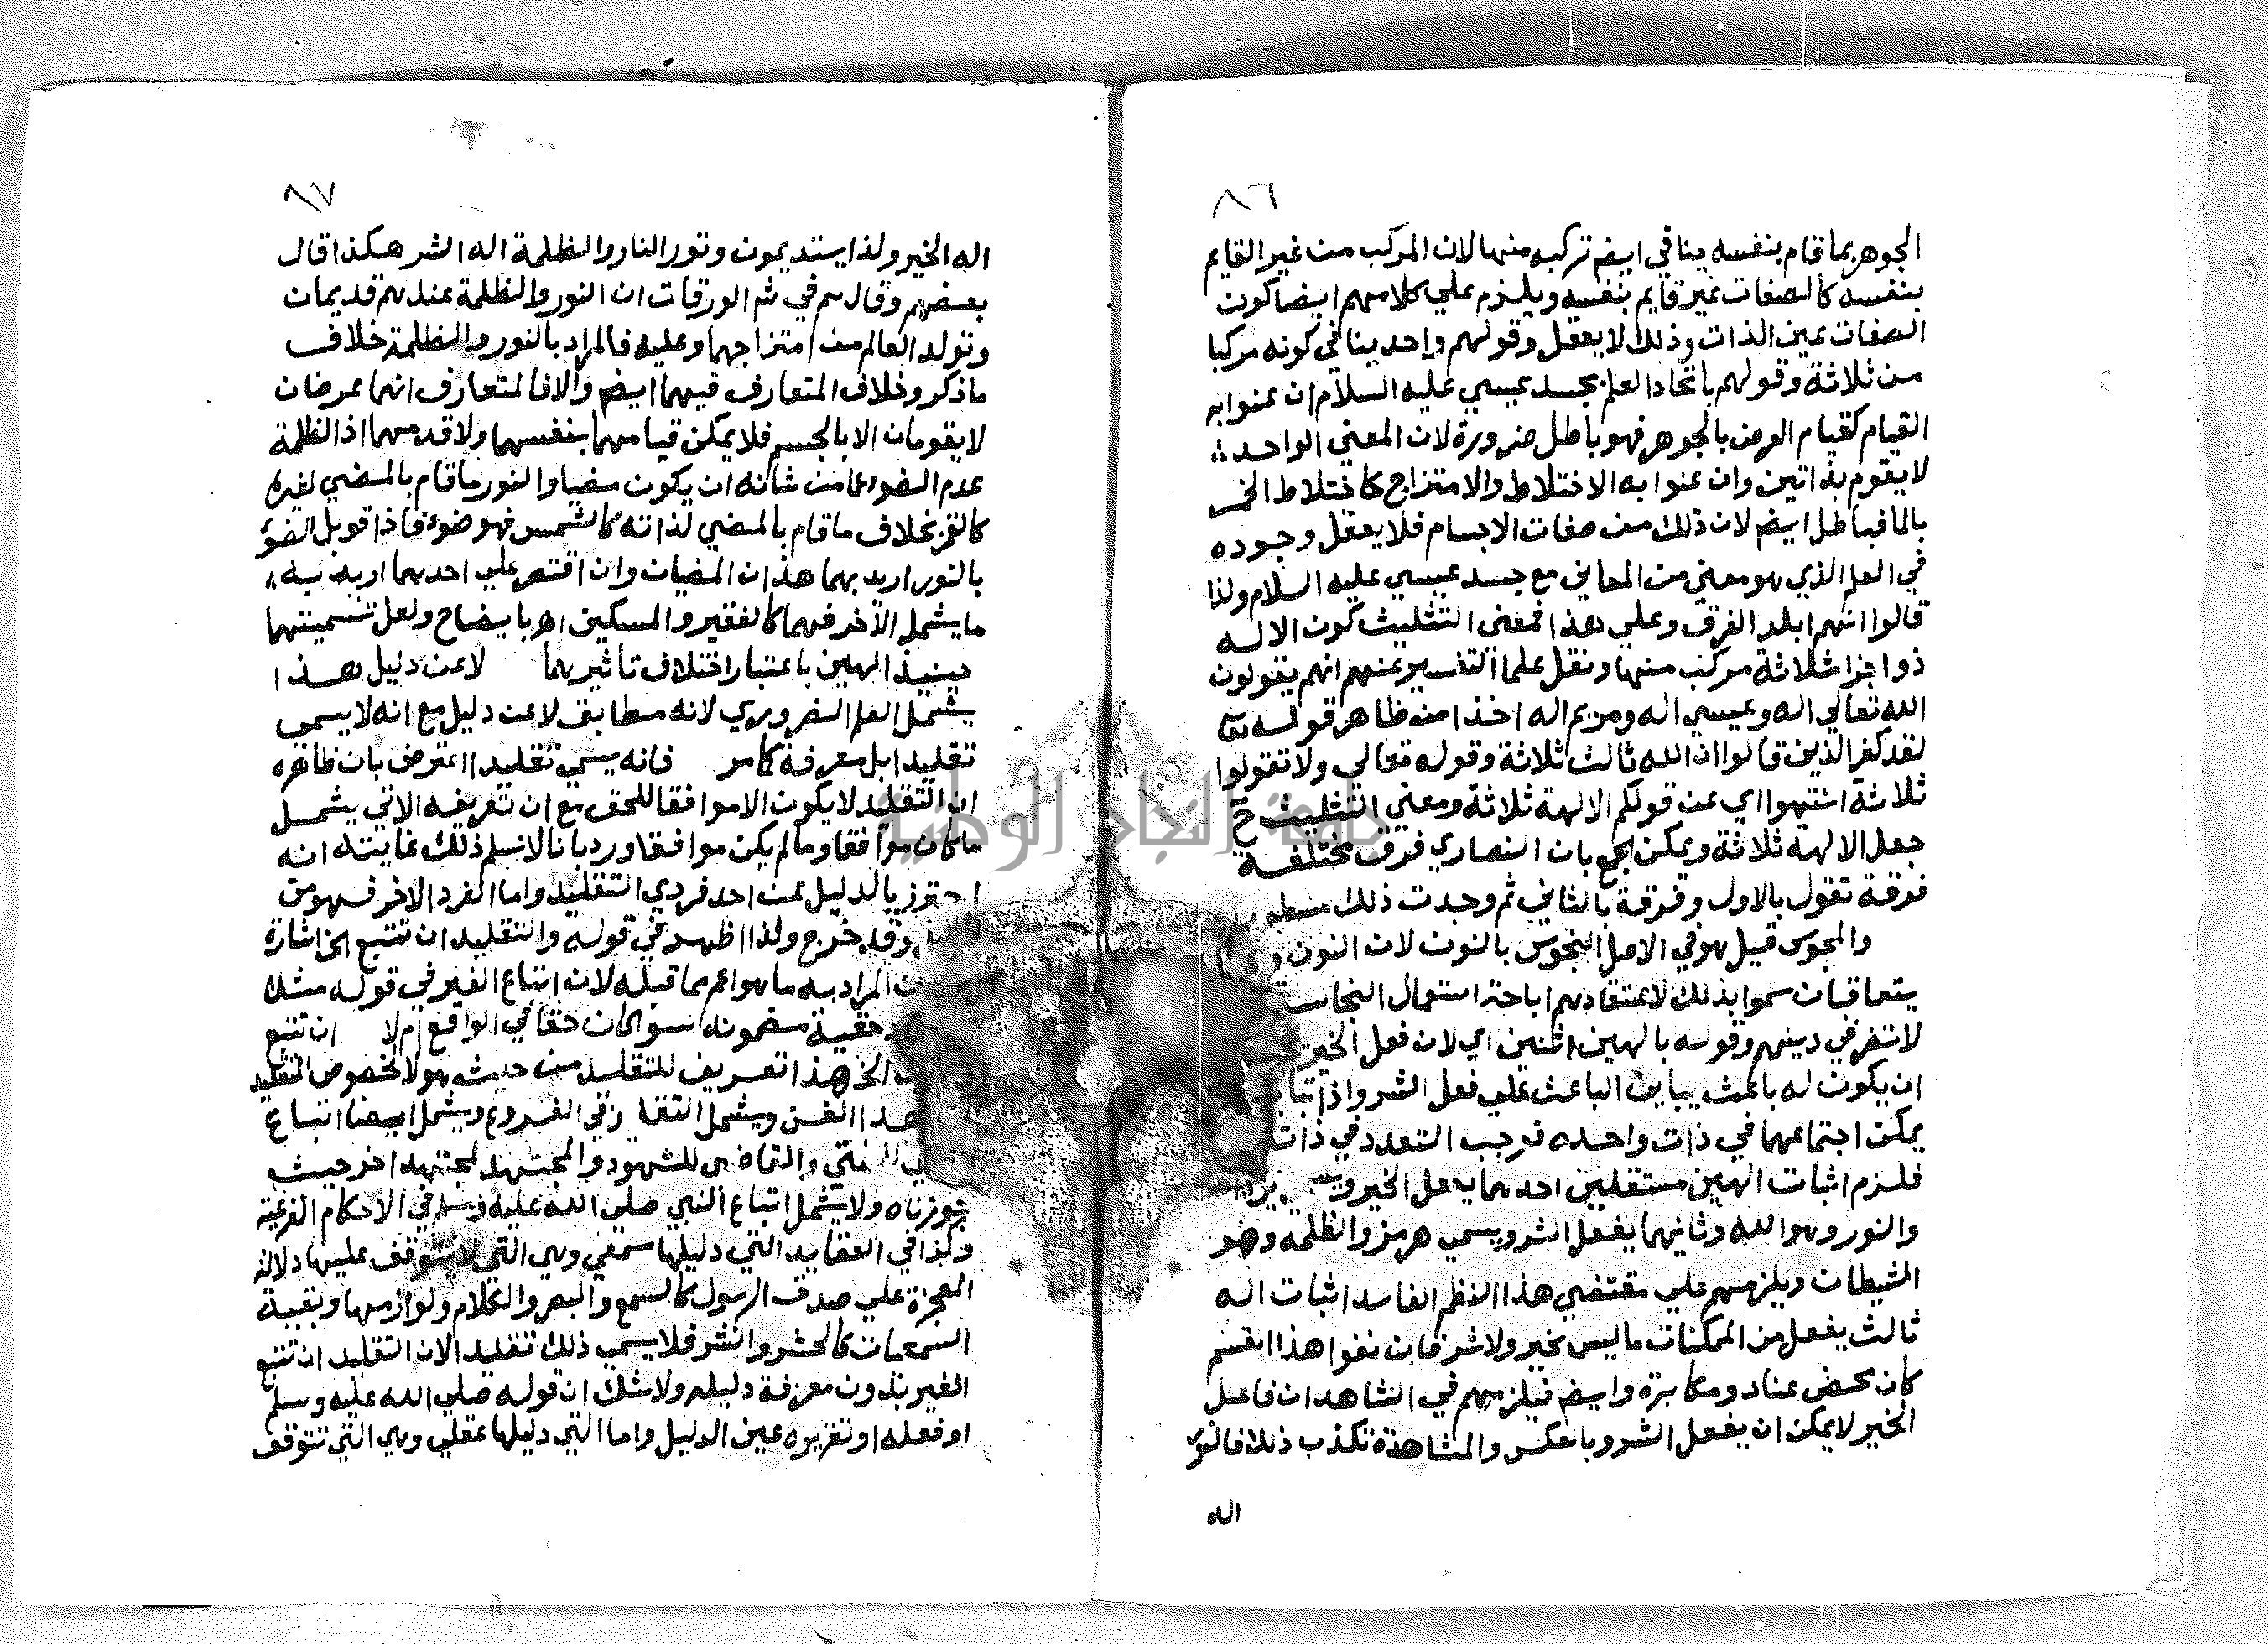 ٨٦
الجوهر بما قام بنفسه ينافي ايضم تركبه منها لان المركب من غير القايم
بنفسه كالصفات غير قايم بنفسه ويلزم علي كلامهم ايضا كون
الصفات عين الذات وذلك لا يعقل وقولهم واحد ينافي كونه مركبا
من ثلاثة وقولهم باتحاد العلم بجسد عيسي عليه السلام ان عنوا به
القيام كقيام العرض بالجوهر فهو باطل ضرورة لان المعني الواحد
لا يقوم بذاتين وان عنوا به الاختلاط والامتزاج كاختلاط الخمر
بالما فباطل ايضم لان ذلك من صفات الاجسام فلا يعقل وجوده
في العلم الذي هو معني من المعاني مع جسد عيسي عليه السلام ولذا
قالوا انهم ابلد الفرق وعلي هذا فمعني التثليث كون الاله
ذو اجزا ثلاثة مركب منها ونقل علما التفسير عنهم انهم يقولون
الله تعالي اله وعيسي اله ومريم اله اخذا من ظاهر قوله تعا
لقد كفر الذين قالوا ان الله ثالث ثلاثة وقوله تعالي ولا تقولوا
ثلاثة انتهوا اي عن قولكم الالهة ثلاثة ومعني التثليث ح
جعل الالهة ثلاثة ويمكن الجمع بان النصاري فرق مختلفة
فرقة تقول بالاول وفرقة بالثاني ثم وجدت ذلك
والمجوس قيل هو في الاصل النجوس بالنون لان النون و
يتعاقبان سموا بذلك لاعتقادهم اباحة استعمال النجاسة
لا تضر في دينهم وقوله بالهين اثنين اي لان فعل الخير
ان يكون له باعث يباين الباعث علي فعل الشر واذا تبا
يمكن اجتماعهما في ذات واحده فوجب التعدد في ذات
فلزم اثبات الهين مستقلين احدهما يفعل الخير
والنور وهو الله وثانيهما يفعل الشر ويسمي هرمز والظلمة وهو
الشيطان ويلزمهم علي مقتضي هذا النظم الفاسد اثبات اله
ثالث يفعل من الممكنات ما ليس بخير ولا شر فان نفوا هذا القسم
كان محض عناد ومكابرة وايضم فيلزمهم في الشاهد ان فاعل
الخير لا يمكن ان يفعل الشر وبالعكس والمشاهدة تكذب ذلك فالنو
اله
٨٧
اله الخير ولذا يستديمون وقود النار والظلمة اله الشر هكذا قال
بعضهم وقال سم في شم الورقات ان النور والظلمة عندهم قديمان
وتولد العالم من امتزاجهما وعليه فالمراد بالنور والظلمة خلاف
ما ذكر وخلاف المتعارف فيهما ايضم والا فالمتعارف انهما عرضان
لا يقومان الا بالجسم فلا يمكن قيامهما بنفسهما ولا قدمهما اذ الظلمة
عدم الضوء عما من شانه ان يكون مضيا والنور ما قام بالمضي لغيره
كالقمر بخلاف ما قام بالمضي لذاته كالشمس فهو ضوء فاذا قوبل الضوء
بالنور اريد بهما هذان المضيان وان اقتصر علي احدهما اريد به
ما يشمل الاخر فهما كالفقير والمسكين اهر بايضاح ولعل تسميتهما
حينيذ الهين باعتبار اختلاف تاثيرهما لا عن دليل هذا
يشمل العلم الضروري لانه مطابق لا عن دليل مع انه لا يسمي
تقليدا بل معرفة كما مر فانه يسمي تقليدا اعترض بان ظاهره
ان التقليد لا يكون الا موافقا للحق مع ان تعريفه الاتي يشمل
ما كان موافقا وما لم يكن موافقا ورد بانا لا نسلم ذلك غايته انه
احترز بالدليل عن احد فردي التقليد واما الفرد الاخر فهو من
وقد خرج ولذا اظهر في قوله والتقليد ان تتبع الخ اشارة
المراد به ما هو اعم مما قبله لان اتباع الغير في قوله مثلا
حقية مضمونه سوا كان حقا في الواقع ام لا ان تتبع
الخ هذا تعريف للتقليد من حيث هو لا لخصوص التقليد
هذا الفن ويشمل التقليد في الفروع ويشمل ايضا اتباع
المفتي والقاضي للشهود والمجتهد لمجتهد اخر حيث
جوزناه ولا يشمل اتباع النبي صلي الله عليه وسلم في الاحكام الفرعية
وكذا في العقايد التي دليلها سمعي وهي التي لا يتوقف عليها دلالة
المعجزة علي صدق الرسول كالسمع والبصر والكلام ولوازمها وبقية
السمعيات كالحشر والنشر فلا يسمي ذلك تقليدا لان التقليد ان تتبع
الغير بدون معرفة دليله ولا شك ان قوله صلي الله عليه وسلم
او فعله او تقريره عين الدليل واما التي دليلها عقلي وهي التي تتوقف
جامعة النجاح الوطنية